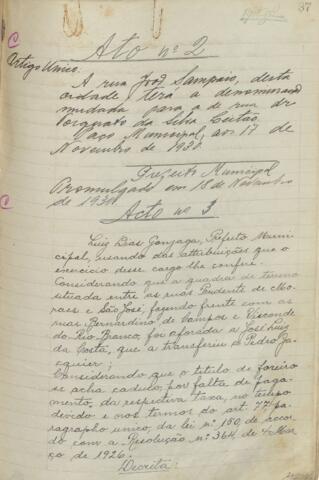 37
Acto nº 2
Artigo Unico.
A rua José Sampaio, desta
cidade, terá a denominação
mudada para a de rua dr.
Torquato da Silva Leitão.
Paço Municipal, aos 17 de
Novembro de 1930.
Prefeito Municipal
Promulgado em 18 de Novembro
de 1930.
Acto nº 3
Luiz Dias Gonzaga, Prefeito Muni-
cipal, usando das attribuições que o
exercicio desse cargo lhe confere.
Considerando que a quadra de terreno
situada entre as ruas Prudente de Mo-
raes e São José, fazendo frente com as
ruas Bernardino de Campos e Visconde
do Rio Branco, foi aforada a José Luiz
da Costa, que a transferiu a Pedro Ja-
equier;
Considerando que o titulo de foreiro
se acha caduco, por falta de paga-
mento, da respectiva taxa, no tempo
devido e nos termos do art. 77, pa-
ragrapho unico, da lei nº 150, de accor-
do com a Resolução nº 364, de Mar-
ço de 1926:
Decreta: